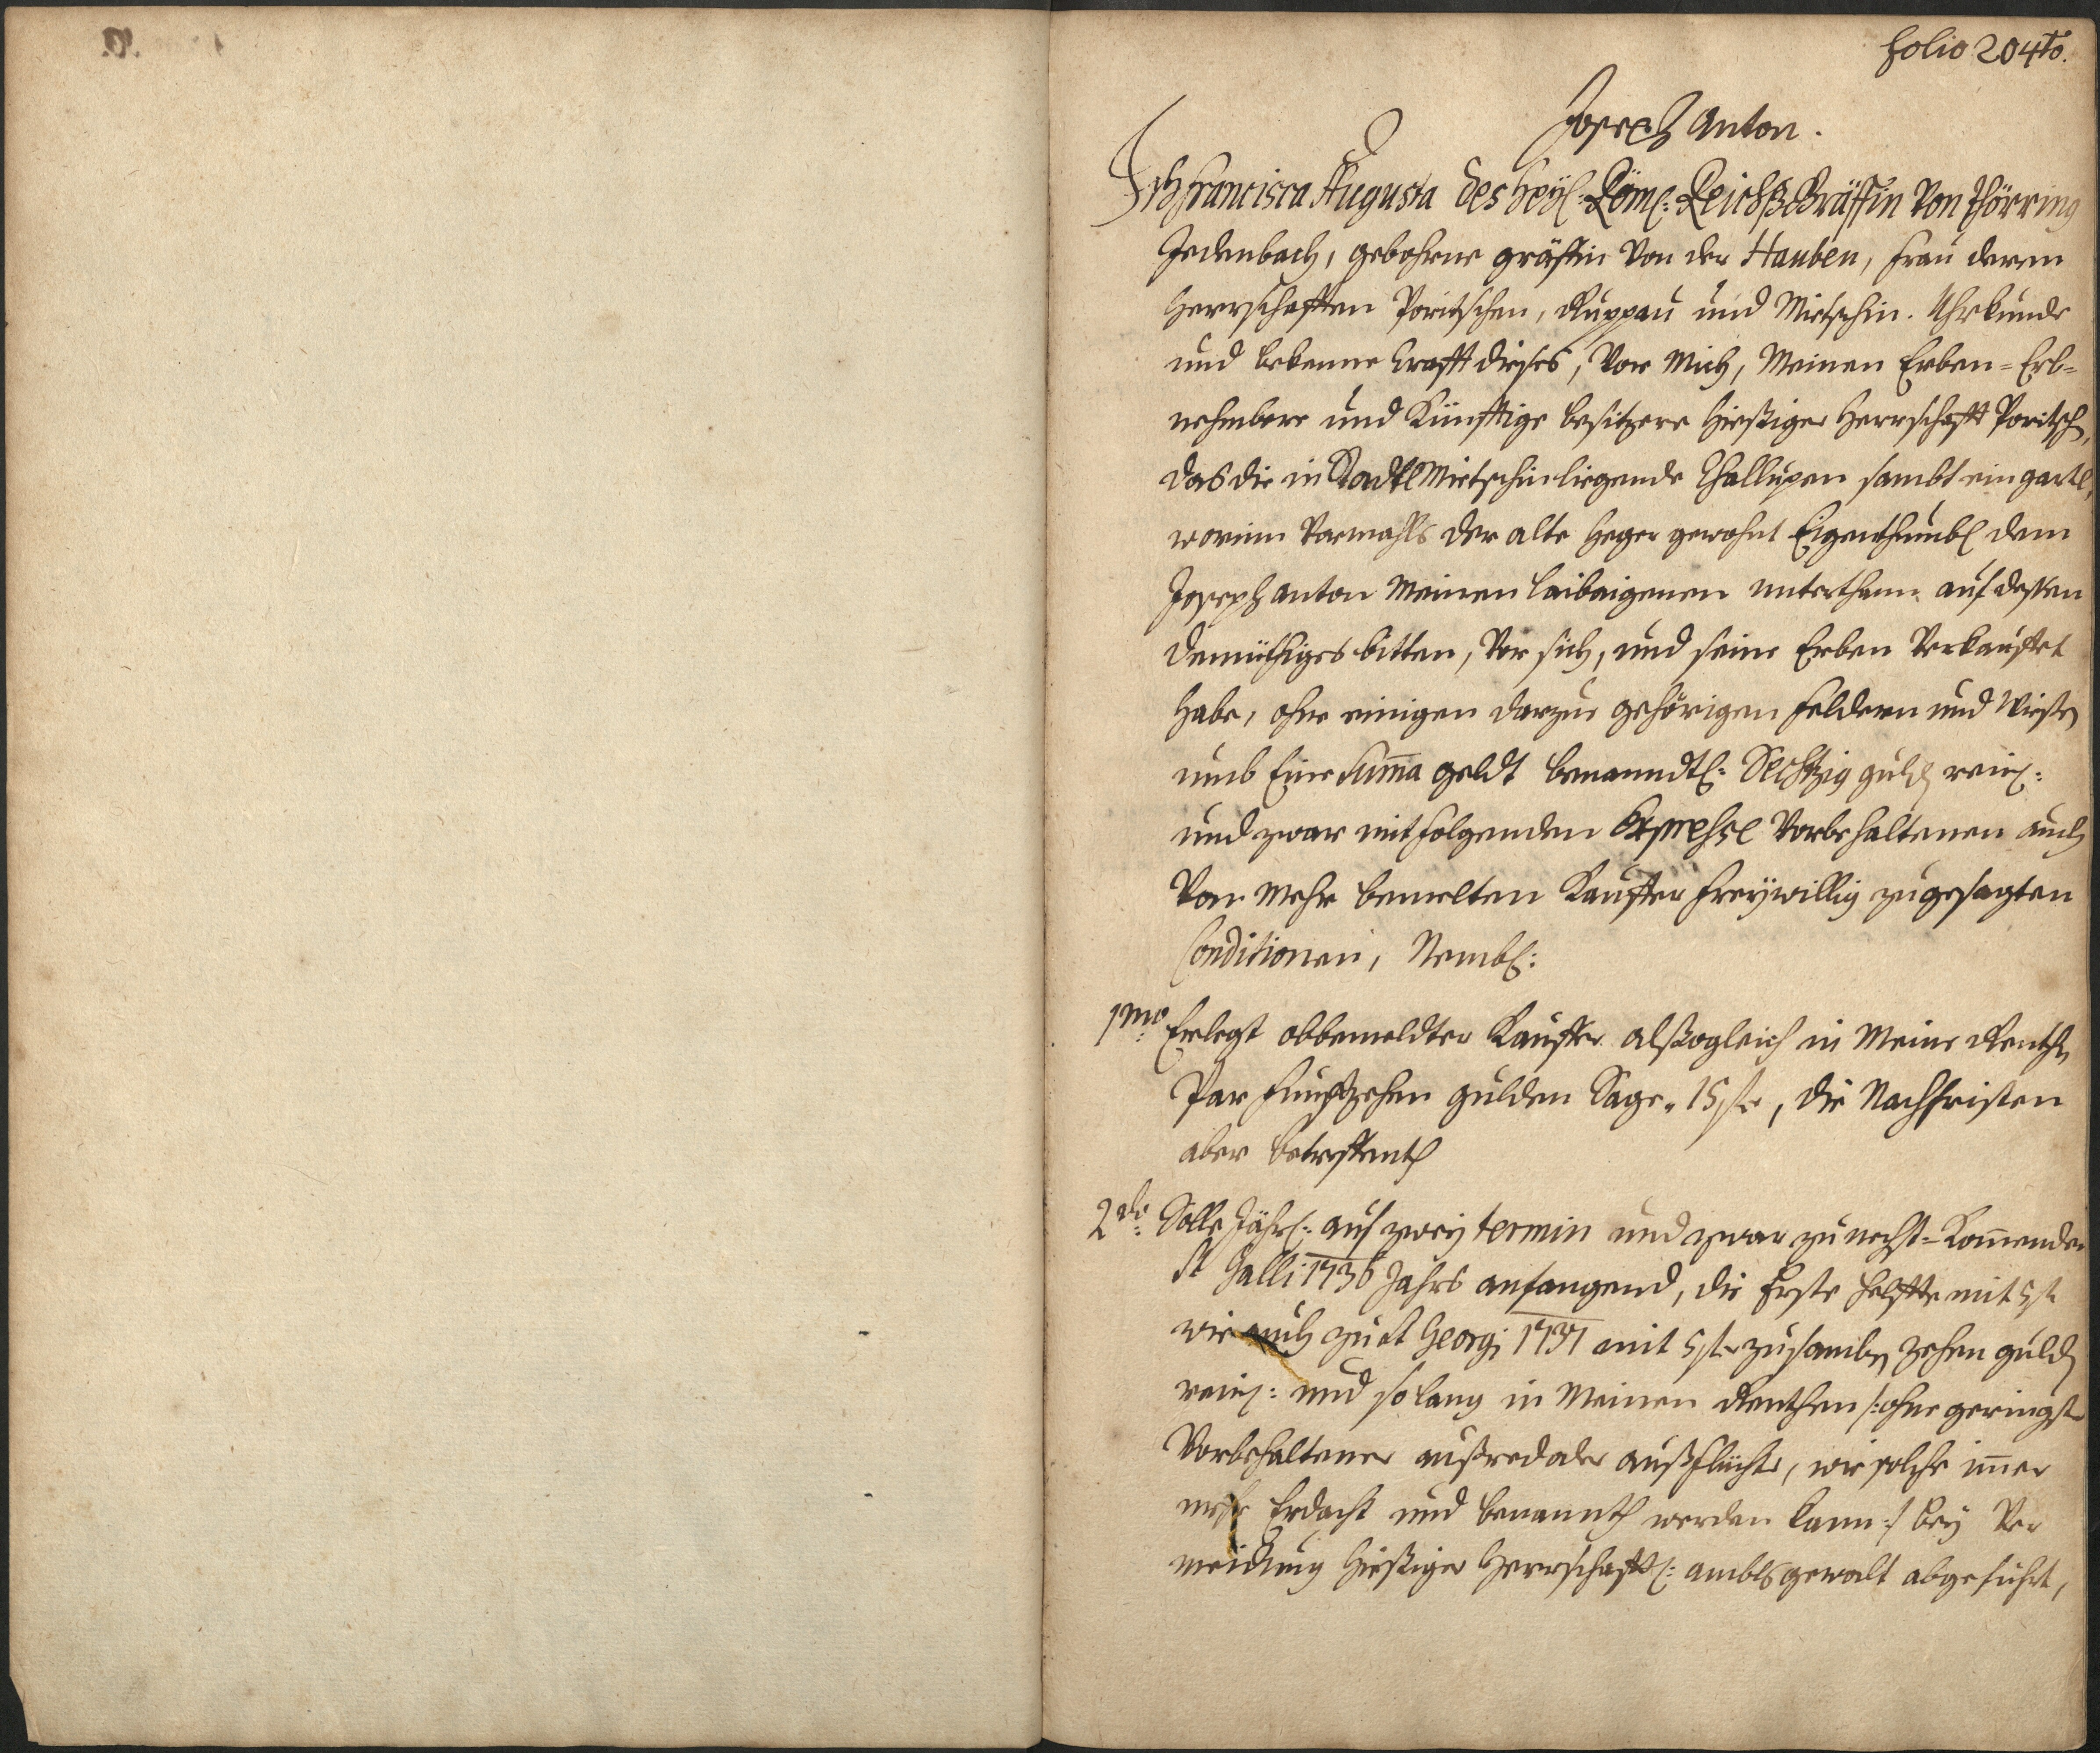 folio 204to.
Joseph Anton.
Ich Francisca Augusta des Heyl: Röm: Reichß Gräffin Von Thörring
Jedenbach, gebohrne gräffin Von der Hauben, Frau deren
Herrschafften Poritschen, Ruppau und Mietschin. Uhrkunde
und bekenne krafft dieses, Vor Mich, Meinen Erben= Erb=
nehmbere und Künfftige besitzere hießiger Herrschafft Poritsch,
das die in Stadtl Mietschin liegende Challupen sambt ein gartl,
worinn Vormahls der alte Heger gewohnt Eigenthumbl dem
Joseph Anton Meinen leibeigenen unterthann auf dessen
demüthiges bitten, Vor sich, und seine Erben Verkauffet
habe, ohne einigen darzue gehörigen Feldern und Wießen
umb Eine Suma geldt benanndtl: Sechtzig guld rein:
und zwar mit folgenden Expresse Vorbehaltenen auch
Von Mehr bemelten Kauffer freywillig zugesagten
Conditionen, Nembl:
1mo: Erlegt obbemeldter Kauffer alßogleich in Meine Renthen
Par Funfftzehen gulden Sage. 15 fl, die Nachfristen
aber betreffent
2do: Solle Jährl: auf zwey termin und zwar zu nechst=Komender
St Galli 1736 Jahrs anfangend, die Erste Helffte mit 5 fl
wie auch zu St Georgj 1737 mit 5 fl zusamben zehen guld
rein: und so lang in Meinen Renthen /: ohne geringst
Vorbehaltener außred oder außflüchte, wie solche imer
Erdacht und benannth werden kann :/ bey Ver
meidtung hießiger Herrschafftl: ambtsgewalt abgeführt,